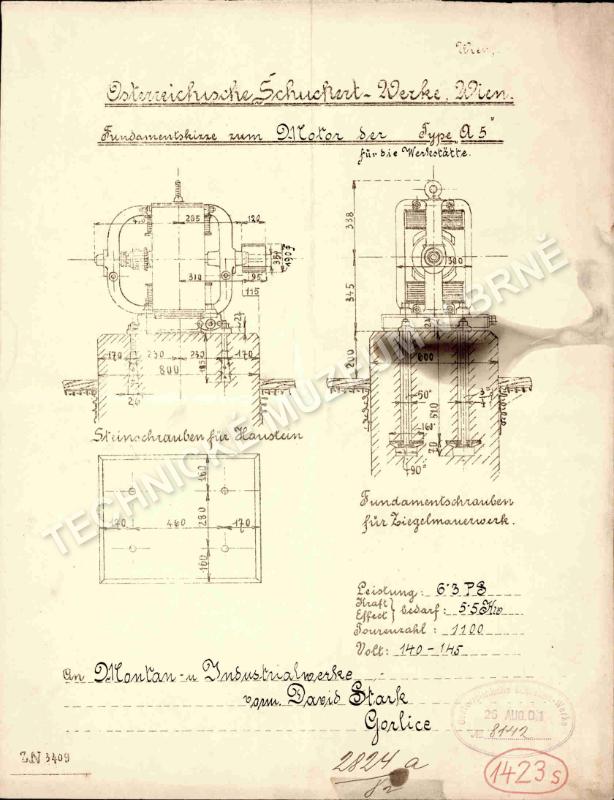 Wien,
Österreichische Schuckert-Werke, Wien.
Fundamentskizze zum Motor der Type A5"
für die Werkstätte.
285
120
310
95
115
170
230
230
170
800
338
345
200
300
600
50"
160
510
70
90"
Steinschrauben für Haustein
160
170
460
280
170
160
Fundamentschrauben
für Ziegelmauerwerk.
Leistung: 6·3 PS
Kraft
Effect } bedarf: 5·5 Kw
Tourenzahl: 1100
Volt: 140-145
An Montan- u Industrialwerke
vorm. David Stark
Gorlice
Österreichische Schuckert-Werke
26 AUG. 01
8142
Z.N 3409
2824 a
1423 s
TECHNICKÉ MUZEUM V BRNĚ